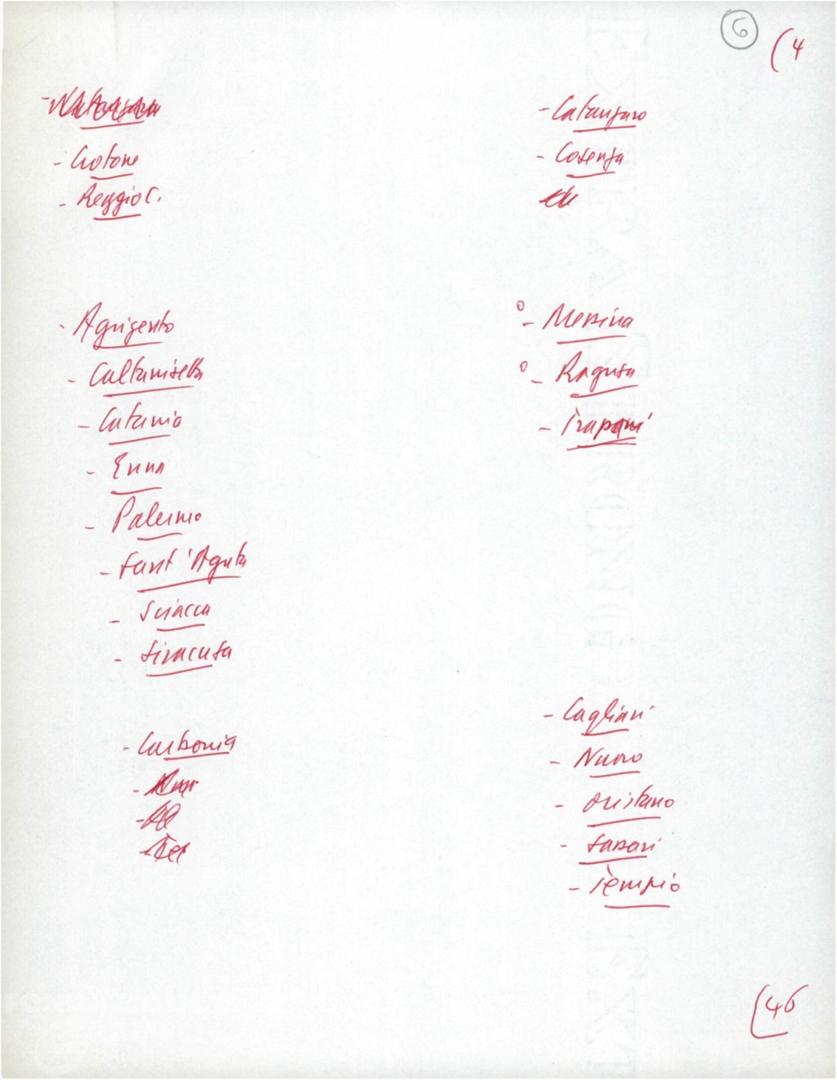 6
(4
- Crotone
- Reggio C.
- Agrigento
- Caltanisetta
- Catania
- Enna
- Palermo
- Sant'Agata
- Sciacca
- Siracusa
- Carbonia
- Catanzaro
- Cosenza
o - Messina
o - Ragusa
- Trapani
- Cagliari
- Nuoro
- Oristano
- Sassari
- Tempio
(46